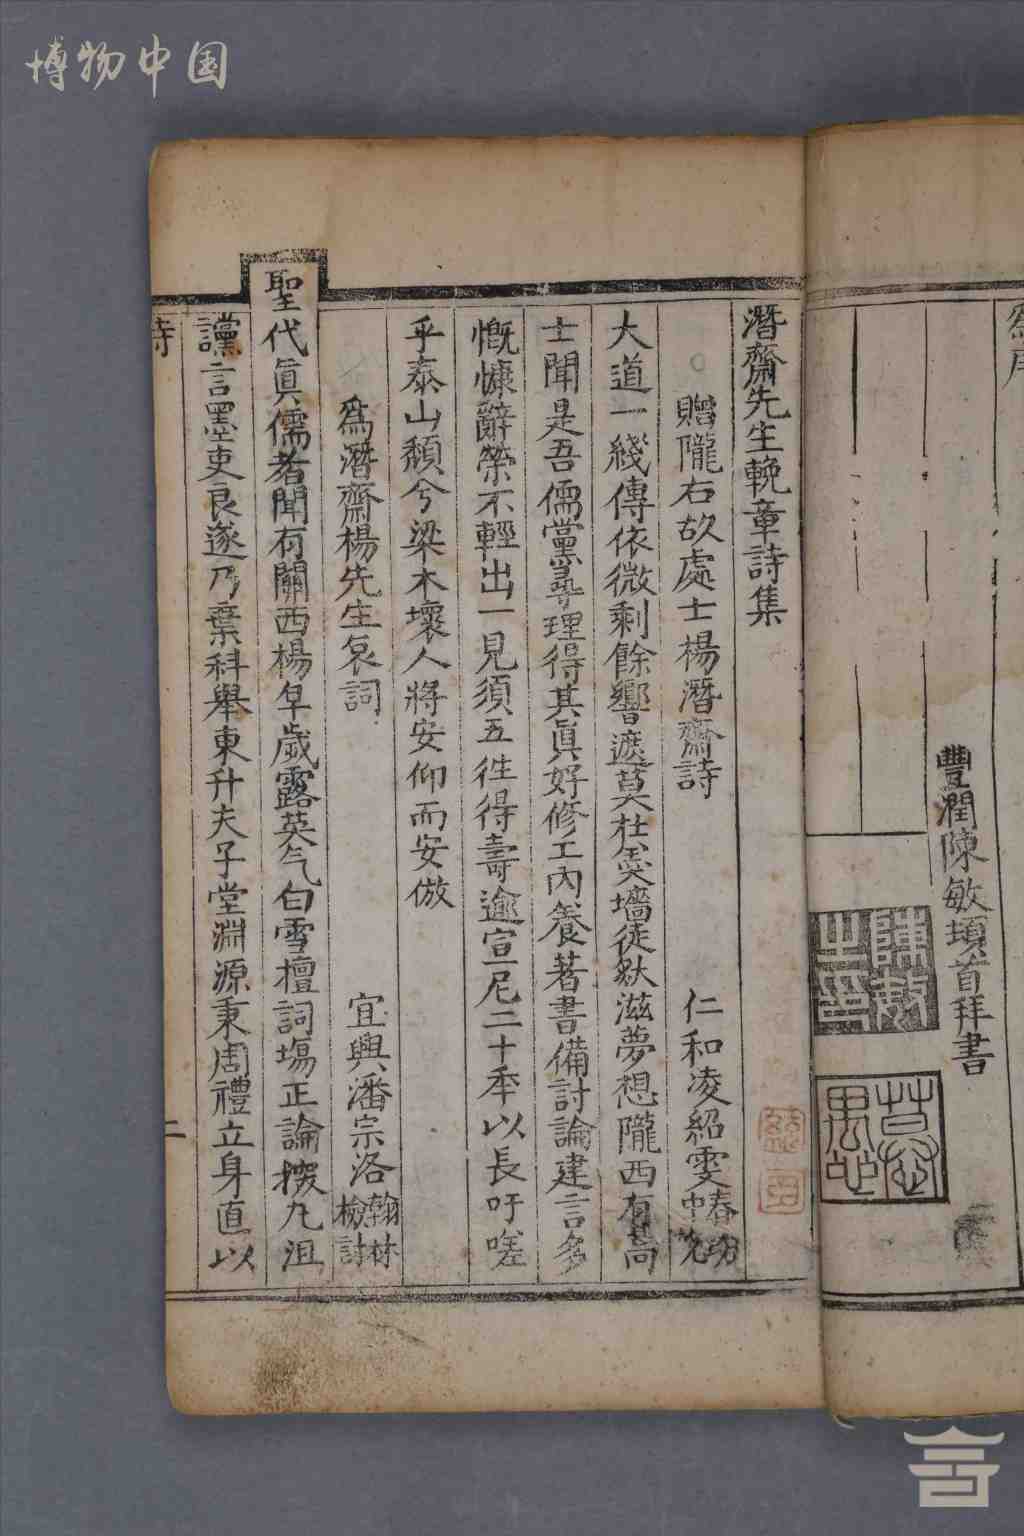 博物中国
豐潤陳敏頊首拜書
潛齋先生輓章詩集
贈隴右故處士楊潛齋詩 仁和凌紹雯
大道一綫傳依微剩餘響遮莫杜羮墻徒缺滋夢想隴西有高
士聞是吾儒黨尋理得其眞好修工內養著書備討論建言多
慨慷辭榮不輕出一見須五徃得壽逾宣尼二十秊以長吁嗟
乎泰山頹兮梁木壞人將安仰而安倣
爲潛齋楊先生哀詞 宜興潘宗洛翰林檢討
聖代眞儒者聞有關西楊早歲露英气白雪檀詞塲正論撥九沮
讜言墨吏良遂乃棄科舉東升夫子堂淵源秉周禮立身直以
詩
二